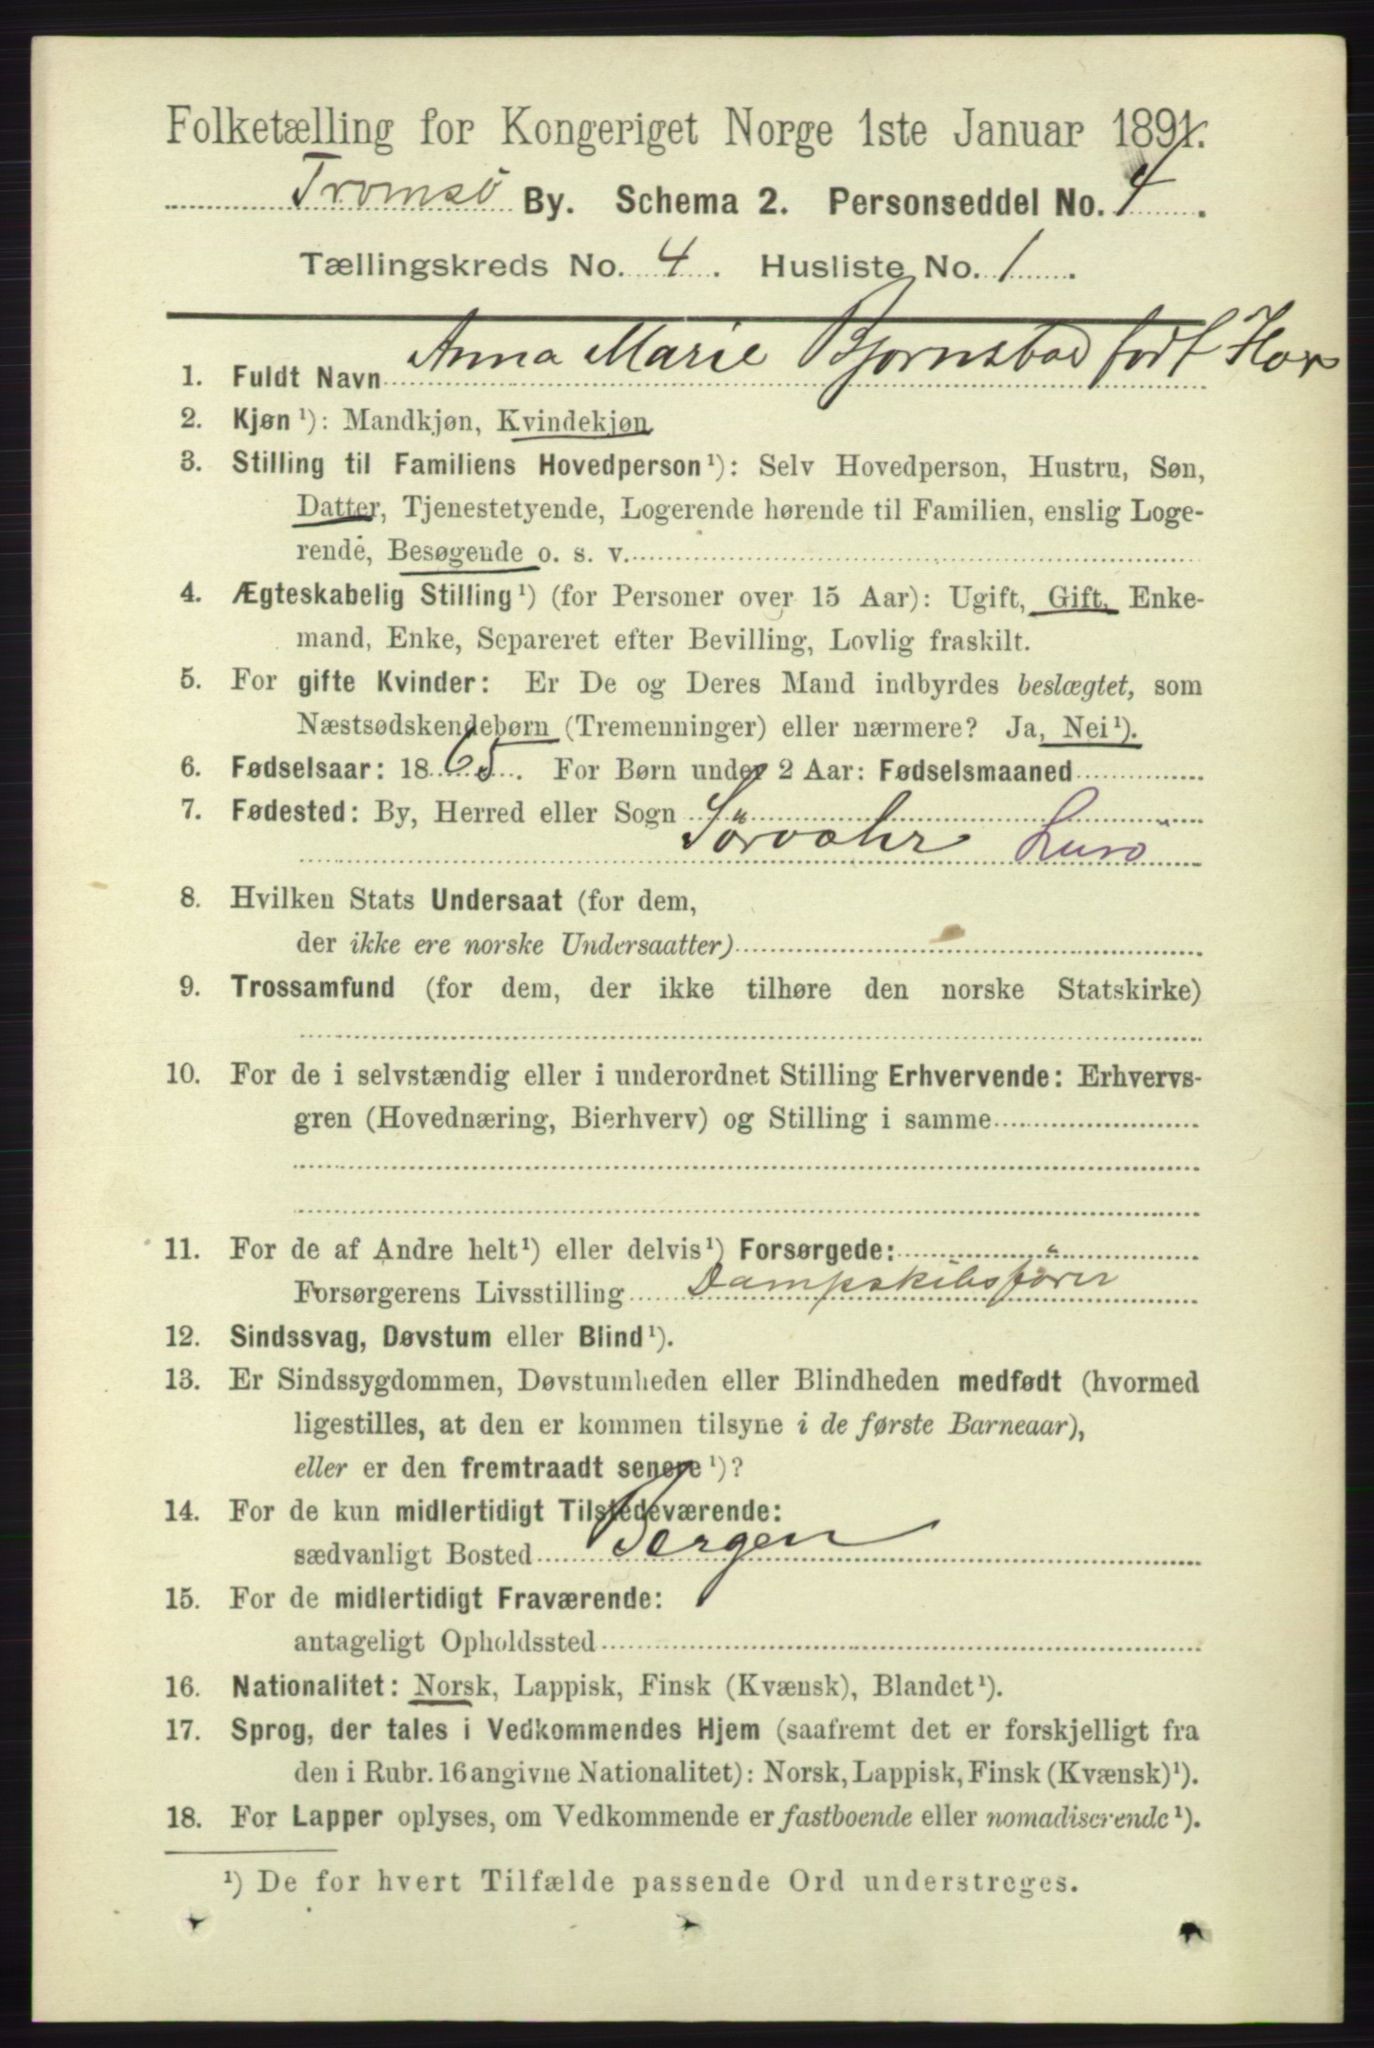 Folketælling for Kongeriget Norge 1ste Januar 1891.
Tromsö By. Schema 2. Personseddel No. 4.
Tællingskreds No. 4. Husliste No. 1.
1. Fuldt Navn Anna Marie Bjornstad födt Hov
2. Kjøn ¹): Mandkjøn, Kvindekjøn
3. Stilling til Familiens Hovedperson ¹): Selv Hovedperson, Hustru, Søn,
Datter, Tjenestetyende, Logerende hørende til Familien, enslig Loge-
rende, Besøgende o. s. v.
4. Ægteskabelig Stilling ¹) (for Personer over 15 Aar): Ugift, Gift, Enke-
mand, Enke, Separeret efter Bevilling, Lovlig fraskilt.
5. For gifte Kvinder: Er De og Deres Mand indbyrdes beslægtet, som
Næstsødskendebørn (Tremenninger) eller nærmere? Ja, Nei ¹).
6. Fødselsaar: 1865. For Børn under 2 Aar: Fødselsmaaned
7. Fødested: By, Herred eller Sogn
Sörvahr Lurö
8. Hvilken Stats Undersaat (for dem,
der ikke ere norske Undersaatter)
9. Trossamfund (for dem, der ikke tilhøre den norske Statskirke)
10. For de i selvstændig eller i underordnet Stilling Erhvervende: Erhvervs-
gren (Hovednæring, Bierhverv) og Stilling i samme
11. For de af Andre helt ¹) eller delvis ¹) Forsørgede:
Forsørgerens Livsstilling Dampskibsförer
12. Sindssvag, Døvstum eller Blind ¹).
13. Er Sindssygdommen, Døvstumheden eller Blindheden medfødt (hvormed
ligestilles, at den er kommen tilsyne i de første Barneaar),
eller er den fremtraadt senere ¹)?
14. For de kun midlertidigt Tilstedeværende:
sædvanligt Bosted Bergen
15. For de midlertidigt Fraværende:
antageligt Opholdssted
16. Nationalitet: Norsk, Lappisk, Finsk (Kvænsk), Blandet ¹).
17. Sprog, der tales i Vedkommendes Hjem (saafremt det er forskjelligt fra
den i Rubr. 16 angivne Nationalitet): Norsk, Lappisk, Finsk (Kvænsk) ¹).
18. For Lapper oplyses, om Vedkommende er fastboende eller nomadiserende ¹).
¹) De for hvert Tilfælde passende Ord understreges.